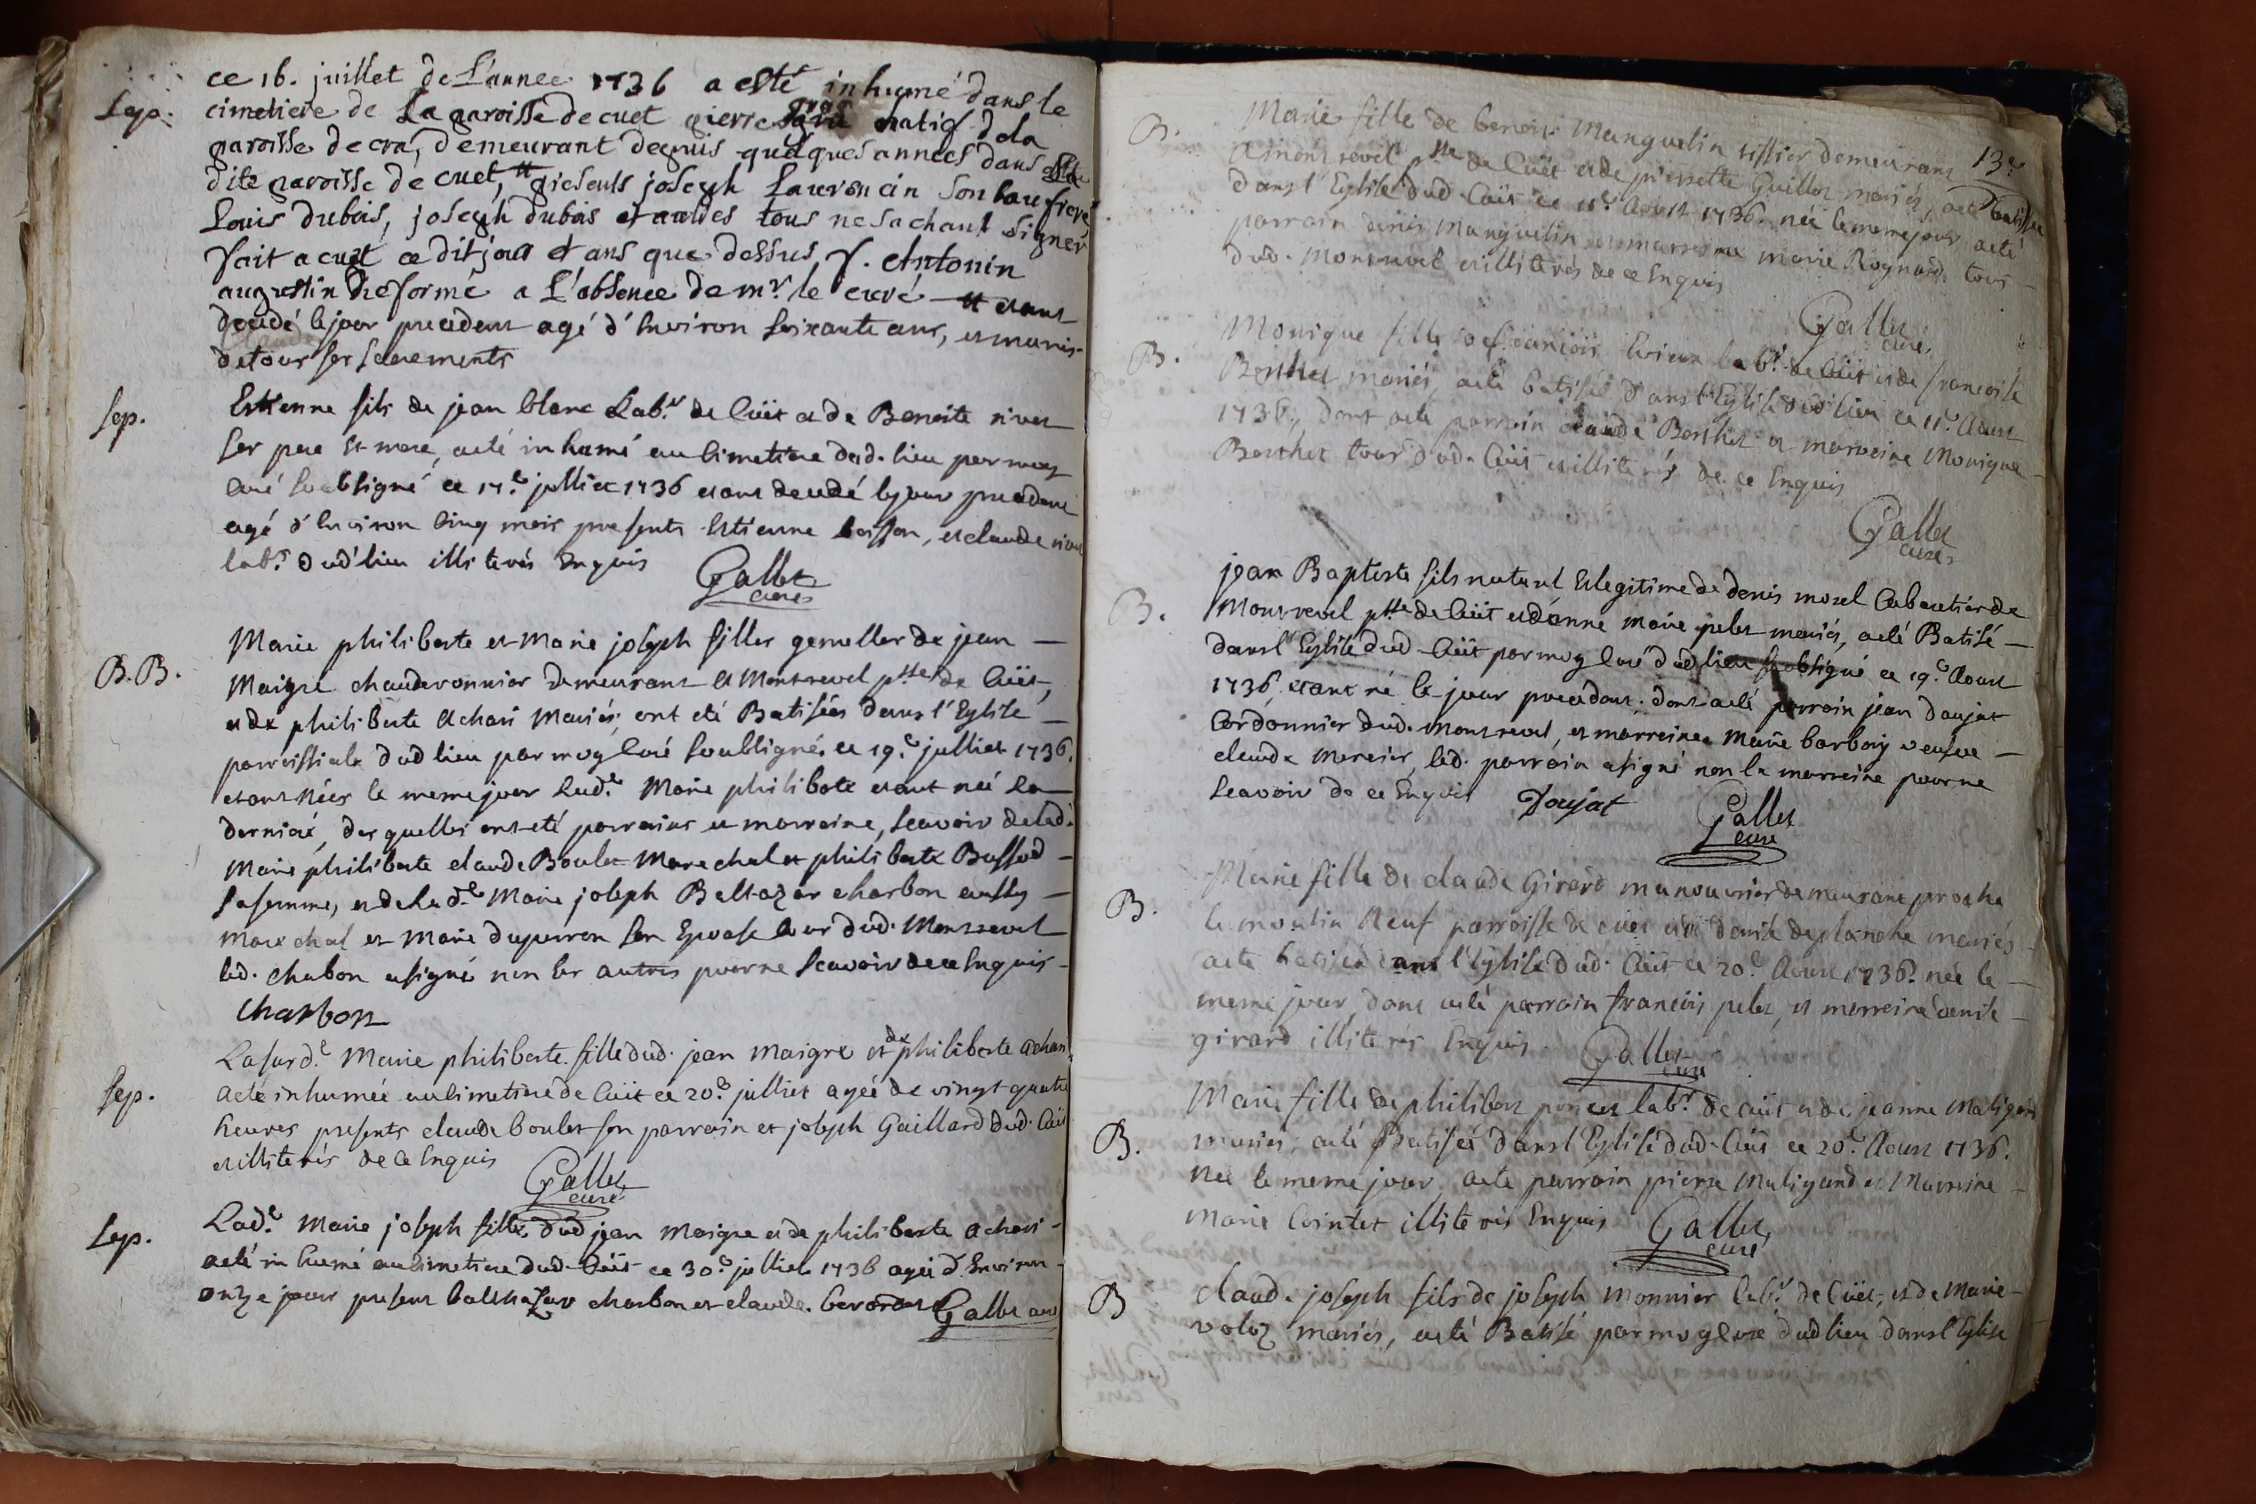 ce 16. juillet de L'annee 1736 a esté inhumé dans le
Sep. cimetiere de La paroisse de cuet pierre gras natif dela
paroisse de cra, demeurant depuis quelques années dans
dite paroisse de cuet, presents joseph Lauroncin son baufrere
Louis dubois, joseph dubois et autres tous ne sachant signer
fait a cuet ce dit jour et ans que dessus f. Antonin
augustin Dreformé a L'absence de mr. le curé et etant
decedé le jour precedent agé d'Environ soixante ans, et munis
de tous ses sacrements
Sep. Estienne fils de jean blanc Labr. de Cüet et de Benoite rivet
ses pere et mere, a eté inhumé au Cimetiere dud. lieu par moy
Curé soubsigné ce 17e. julliet 1736 etant decedé le jour precedent
agé d'Environ Cinq mois presents Estienne boisson, et claude rivet
labr. dud' lieu illiterés Enquis
Gallet
curé
Marie philiberte et Marie joseph filles gemelles de jean
B.B. Maigre chauderonnier demeurant a Montrevel psse de Cüet,
et de philiberte Achari Mariés, ont eté Batisées dans l'Eglise
parroissiale dud lieu par moy Curé soubsigné ce 19e. julliet 1736.
etant Nées le meme jour lad.e Marie philiberte etant née la
derniere, desquelles ont eté parrains et marreine, scavoir de lad.
Marie philiberte claude Boulet Marechal et philiberte Buffod
sa femme, et de lad.e Marie joseph Baltazar charbon aussy
marechal et Marie duperron son Epouse tous dud. Montrevel
led. chabon a signé non les autres pour ne scavoir de ce Enquis
Charbon
La susd.e Marie philiberte fille dud. jean Maigre et de philiberte achari
Sep. a eté inhumée au Cimetiere de Cüet ce 20e. julliet agée de vingt quatre
heures presents claude boulet son parrain et joseph Gaillard dud. Cüet
et illiterés de ce Enquis
Gallet
curé
Sep. Lad.e Marie joseph fille dud jean Maigre et de philiberte Achari
a eté inhumé au Cimetiere dud. Cüet ce 30e. julliet 1736 agée d'Environ
onze jours presens balthazar charbon et claude Gallet curé
13e
B. Marie fille de benoit Manguelin tissier demeurant
a montrevel psse de Cüet et de pierrette Guillot mariés, a eté batisée
dans l'Eglise dud. Cüet ce 11e. Aoust 1736. née le meme jour a eté
parrain denis Manguelin et marreine marie Rognard tous
dud. Montrevel et illiterés de ce Enquis
Gallet
curé
Monique fille de francois Labr. de Cüet et de francoise
B. Berthet mariés, a eté batisée dans l'Eglise dud. lieu ce 11e. Aoust
1736, dont a eté parrain claude Berthet et marreine Monique
Berthet tous dud. Cüet et illiterés de ce Enquis
Gallet
curé
jean Baptiste fils naturel et legitime de denis morel Cabartier de
B. Montrevel psse de Cüet et d'anne marie pelet mariés, a eté Batisé
dans l'Eglise dud Cüet par moy Curé dud lieu soubsigné ce 19e. Aoust
1736. etant né le jour precedant. dont a eté parrain jean doujat
Cordonnier dud. Montrevel, et marreine Marie barboy veufve
claude Mercier, led. parrain a signé non la marreine pour ne
scavoir de ce Enquis Doujat
Gallet
curé
Marie fille de claude Girard manouvrier demeurant proche
B. le moulin Neuf parroisse de cuet et de denise deplanche mariés
a eté batisée dans l'Eglise dud. Cüet ce 20e. Aoust 1736. née le
meme jour, dont a eté parrain francois pelet, et marreine denise
girard illiterés Enquis
Gallet
curé
Marie fille de philibert poncet labr. de cüet et de jeanne Maligand
B. mariés, a eté Batisée dans l'Eglise dud. Cüet ce 20e. Aoust 1736.
Née le meme jour, a eté parrain pierre Maligand et Marreine
Marie Cointet illiterés Enquis
Gallet
curé
B claude joseph fils de joseph Monnier labr. de Cüet, et de Marie
voloz mariés, a eté Batisé par moy Curé dud lieu dans l'Eglise